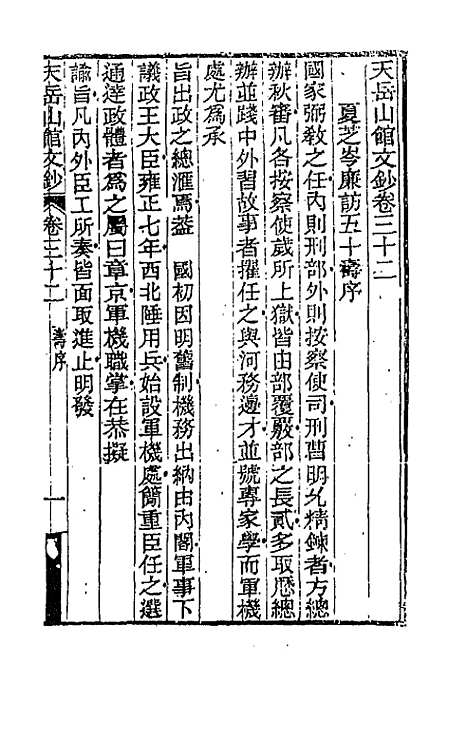 天岳山館文鈔卷三十二
夏芝岑廉訪五十壽序
國家弼敎之任內則刑部外則按察使司刑曹明允精鍊者方總
辦秋審凡各按察使歲所上獄皆由部覆覈部之長貳多取歴總
辦並踐中外習故事者擢任之與河務邊才並號專家學而軍機
處尤爲承
旨出政之總滙焉蓋 國初因明舊制機務出納由內閣軍事下
議政王大臣雍正七年西北陲用兵始設軍機處簡重臣任之選
通達政體者爲之屬曰章京軍機職掌在恭擬
諭旨凡內外臣工所奏皆面取進止明發
天岳山館文鈔 卷三十二 壽序 一